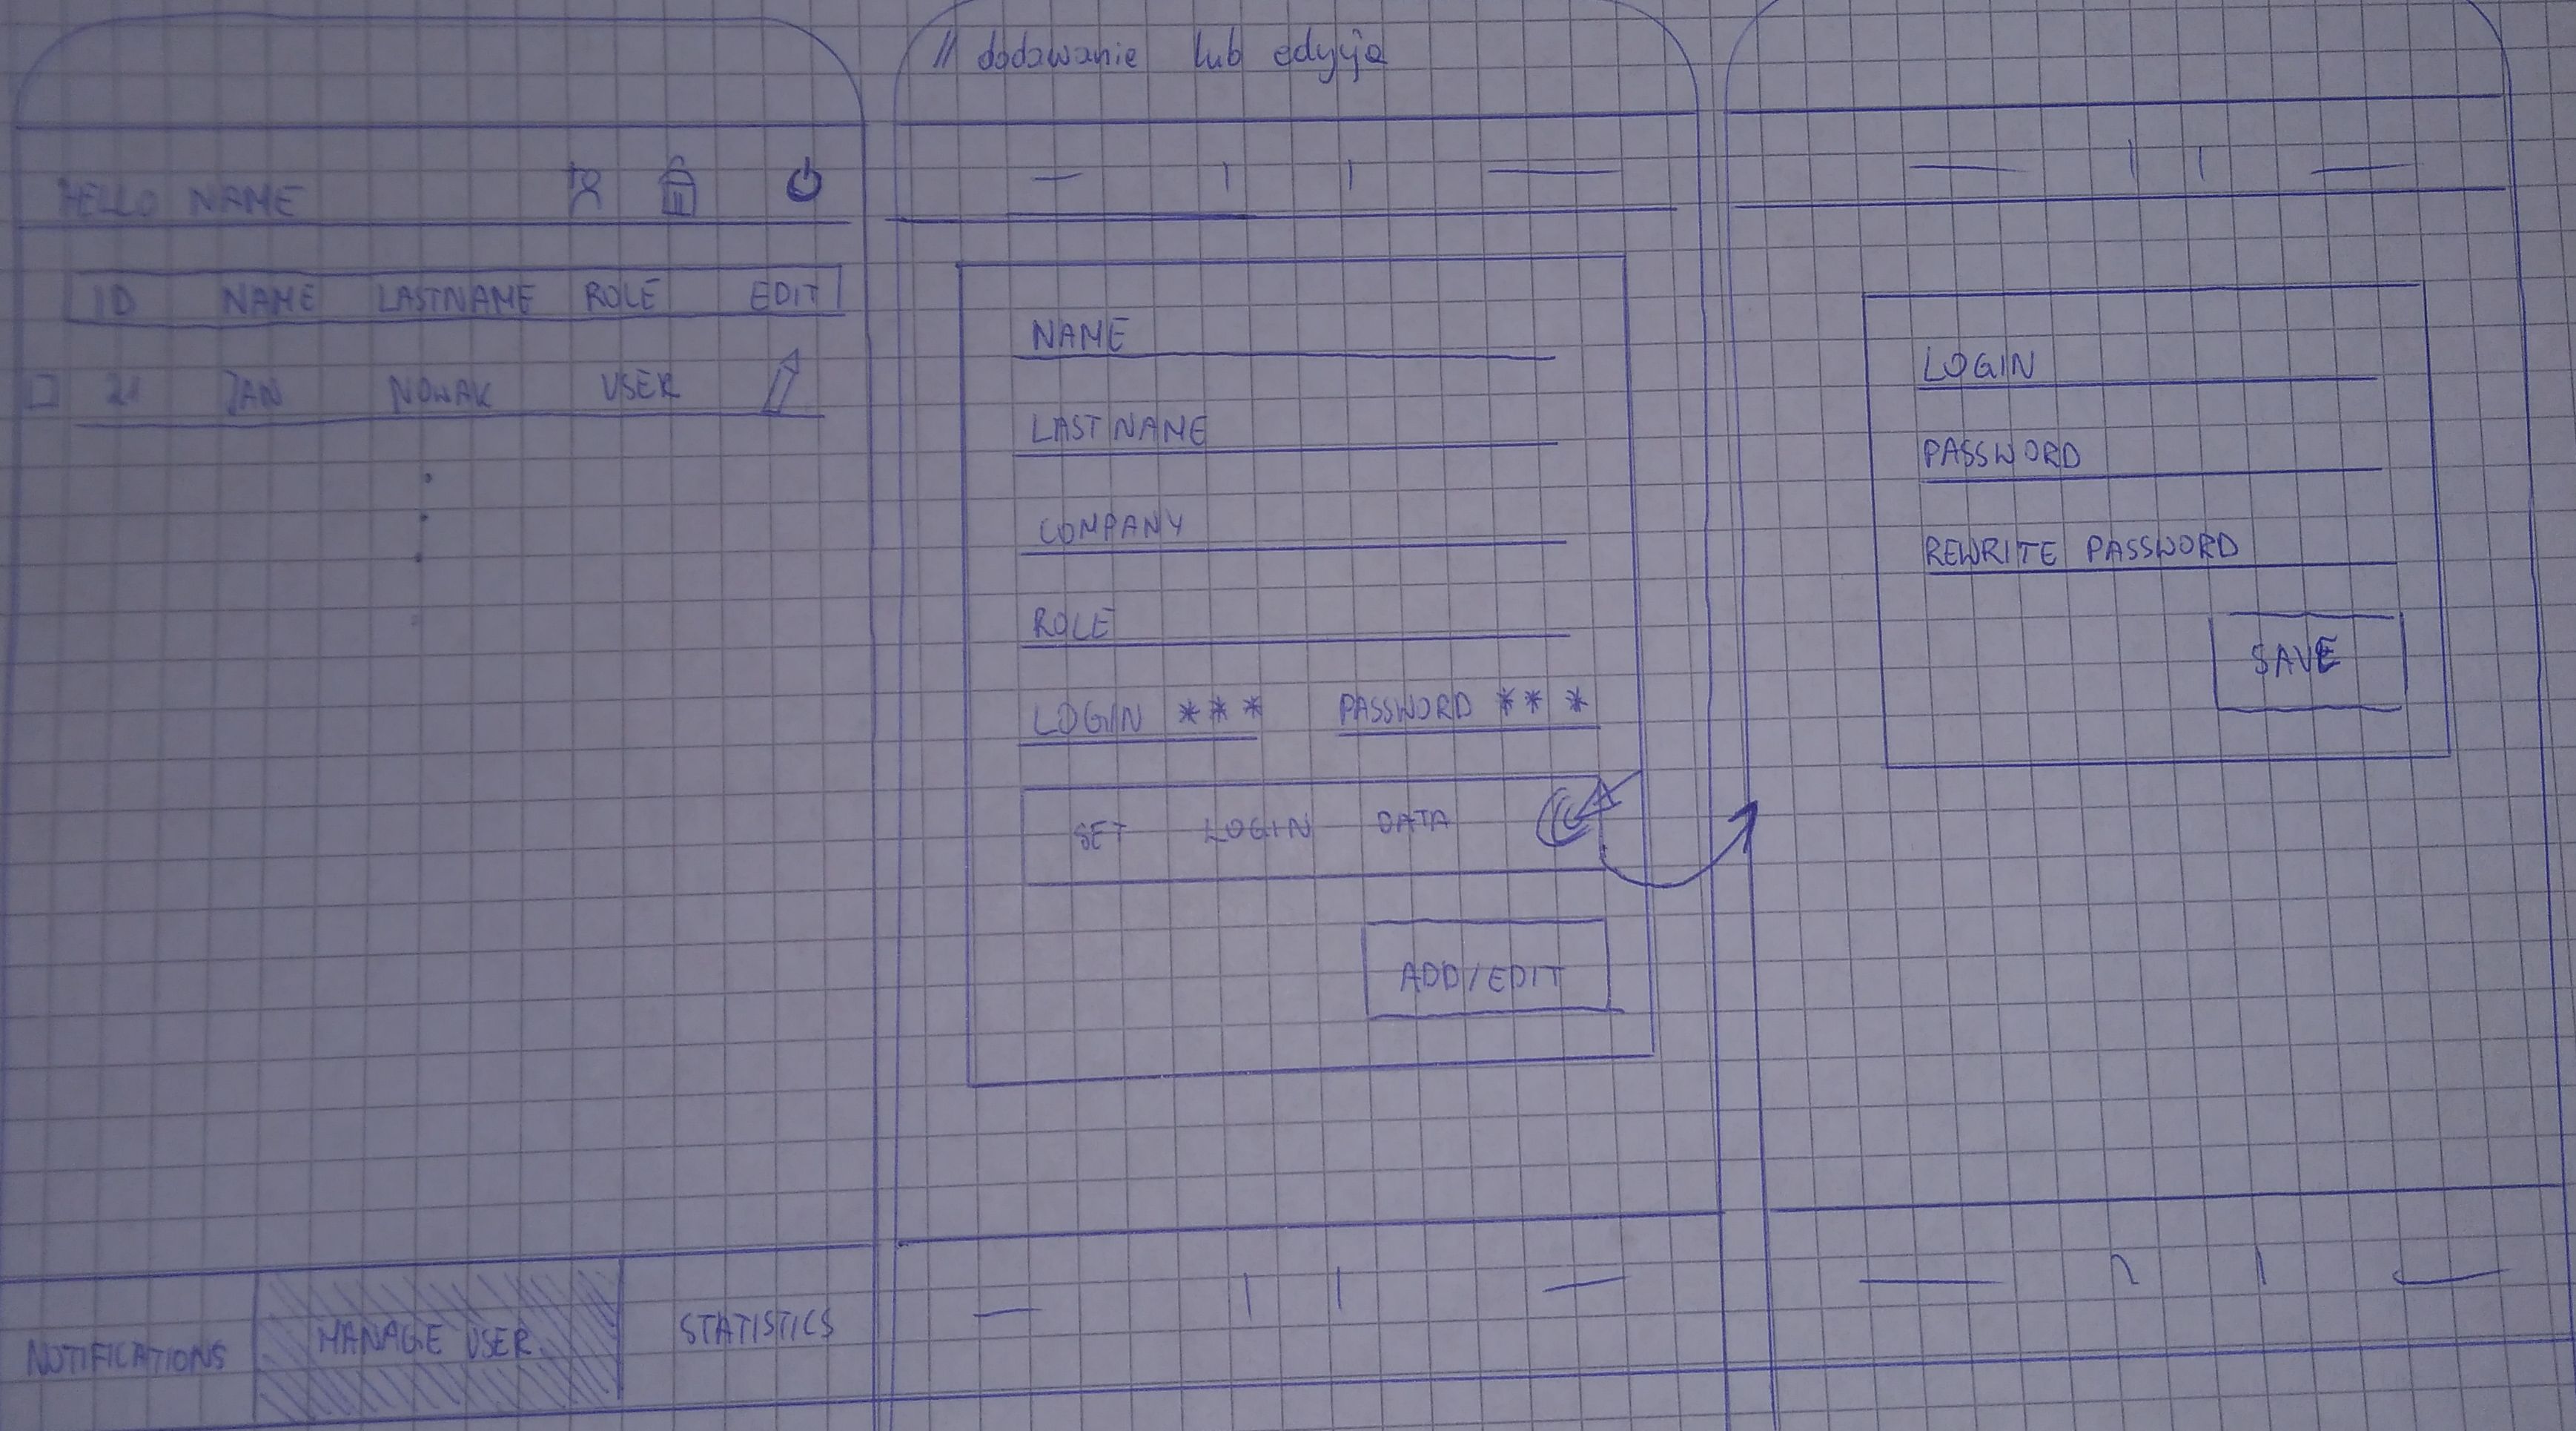 HELLO NAME
ID NAME LASTNAME ROLE EDIT
21 JAN NOWAK USER
NOTIFICATIONS MANAGE USER STATISTICS
// dodawanie lub edycja
NAME
LASTNAME
COMPANY
ROLE
LOGIN *** PASSWORD ***
SET LOGIN DATA
ADD/EDIT
LOGIN
PASSWORD
REWRITE PASSWORD
SAVE